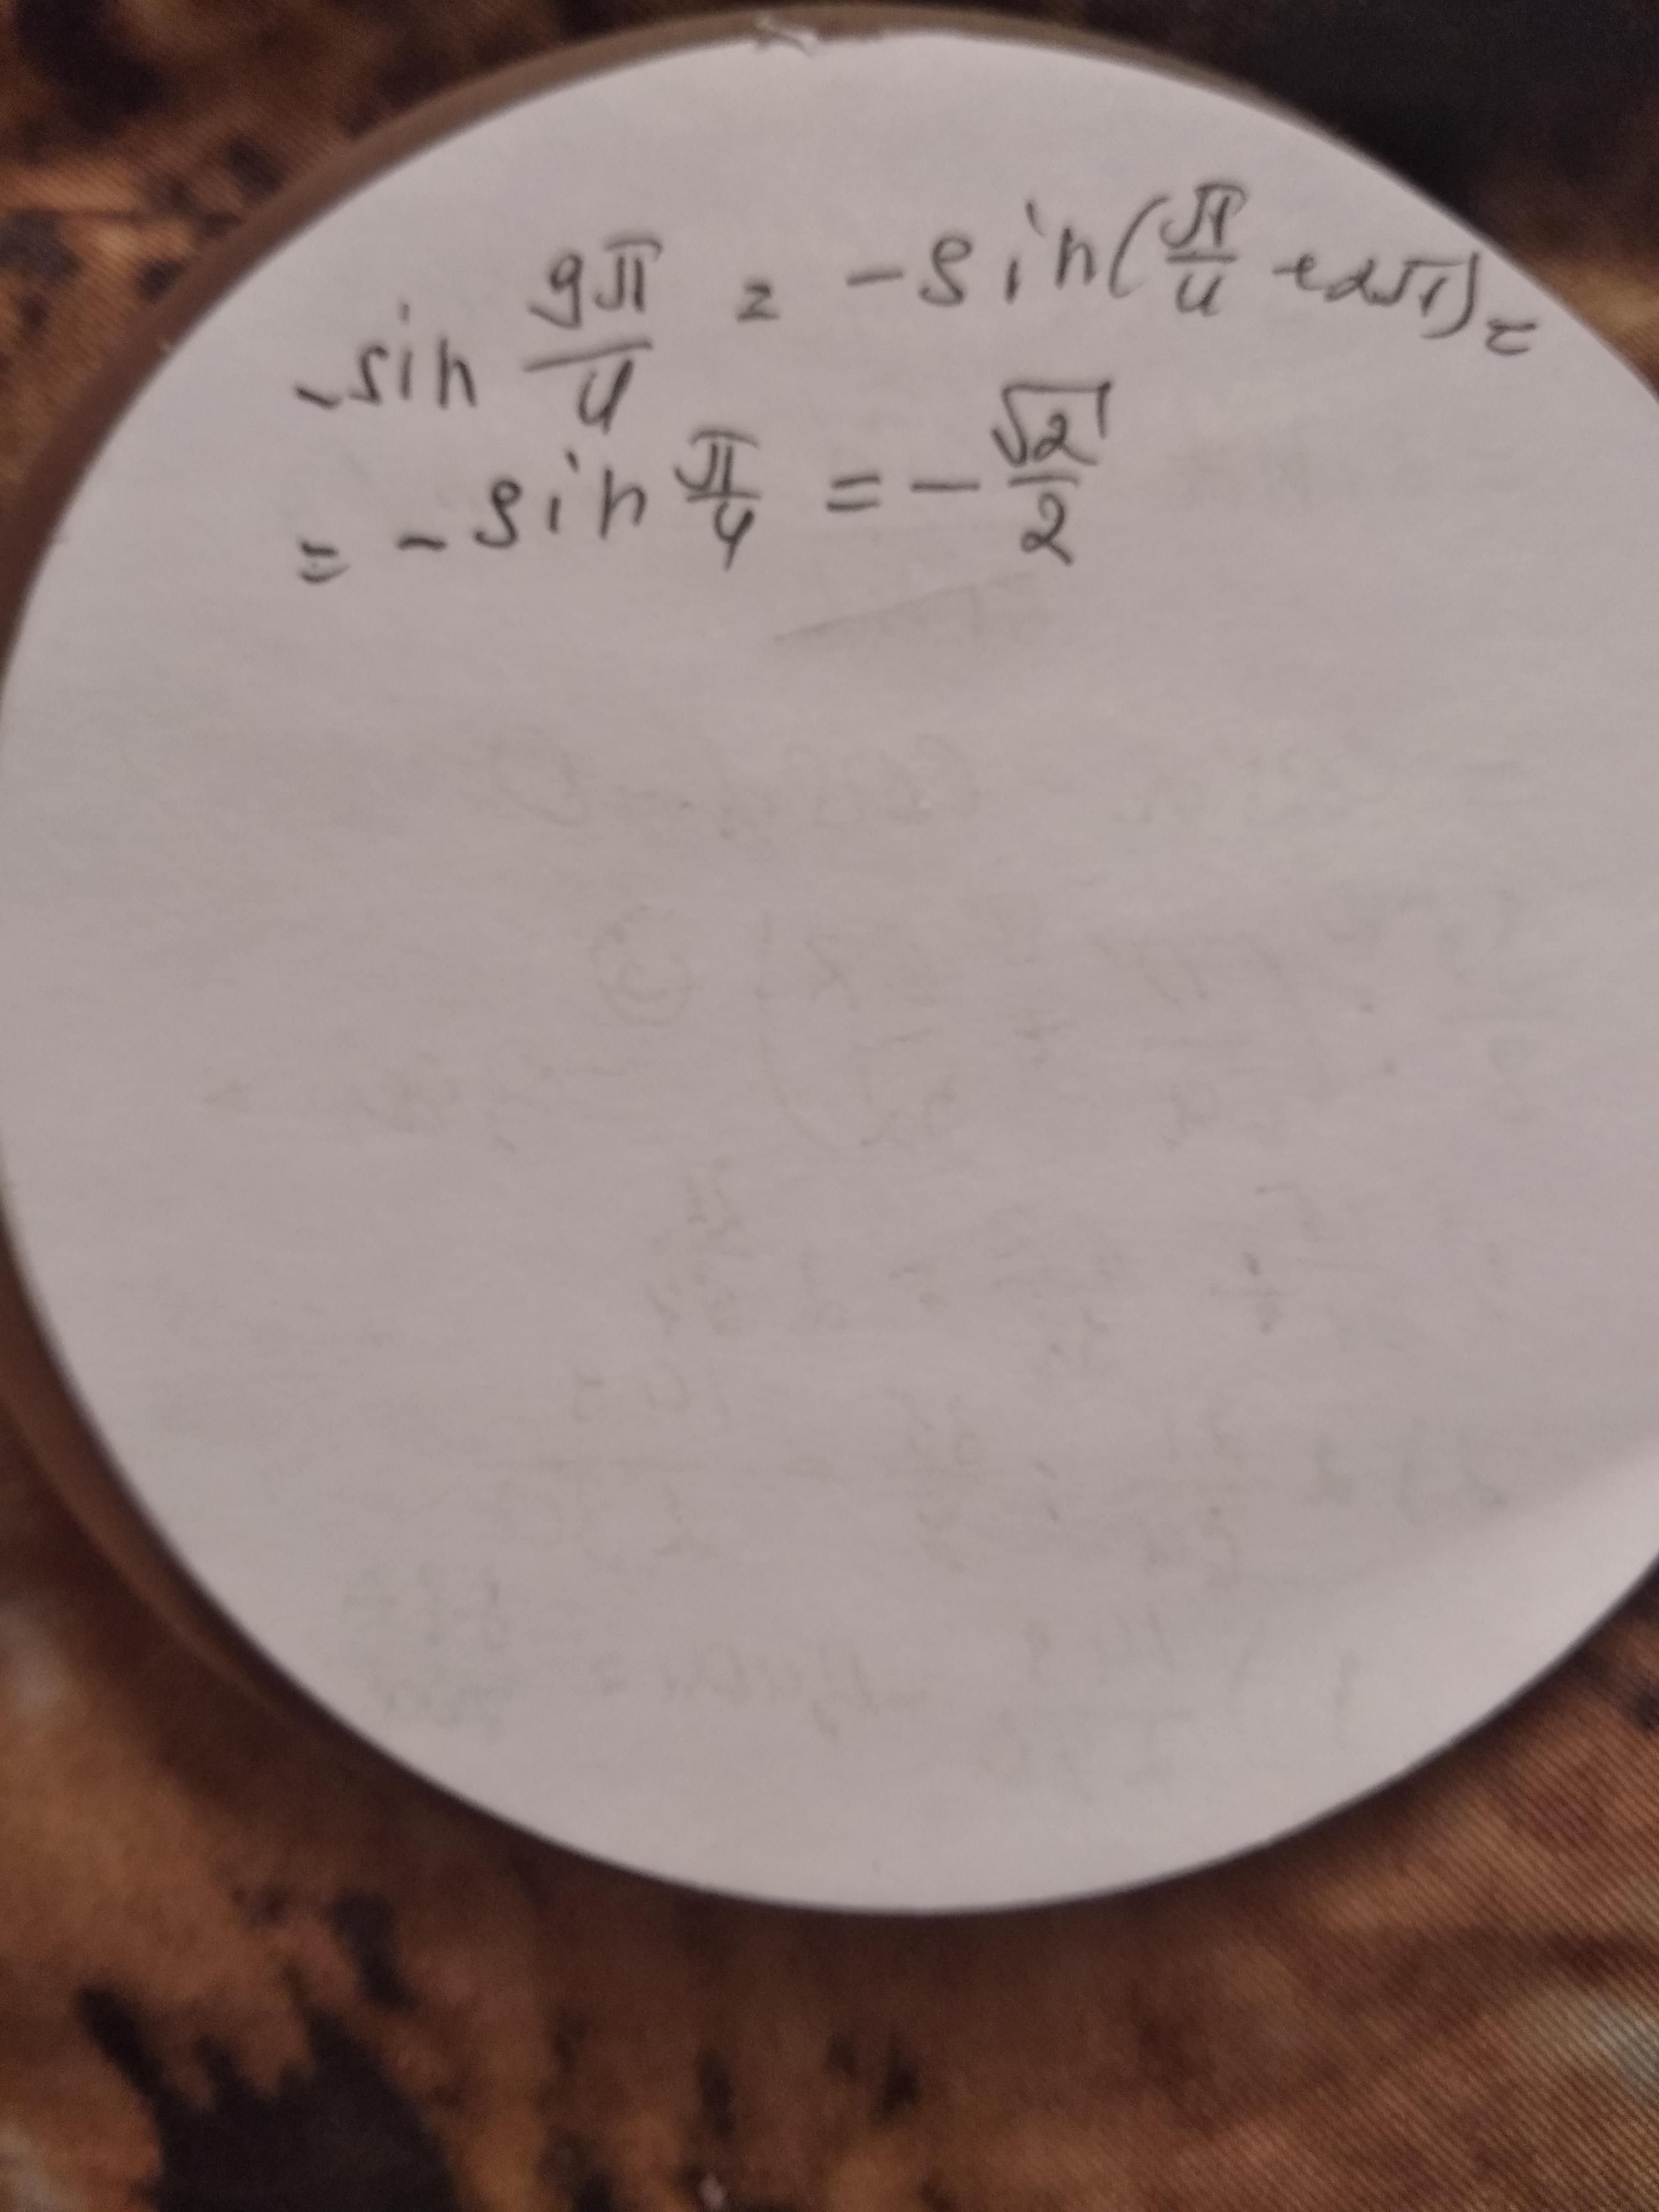 -sin 9π/4 = -sin(π/4 + 2π) =
= -sin π/4 = -√2/2